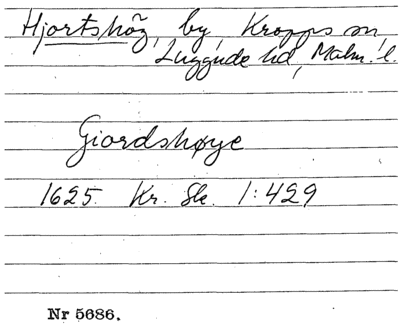 Hjortshög, by, Kropps sn,
Luggude hd, Malm. l.
Giordshøye
1625. Kr. Sk. 1:429
Nr 5686.